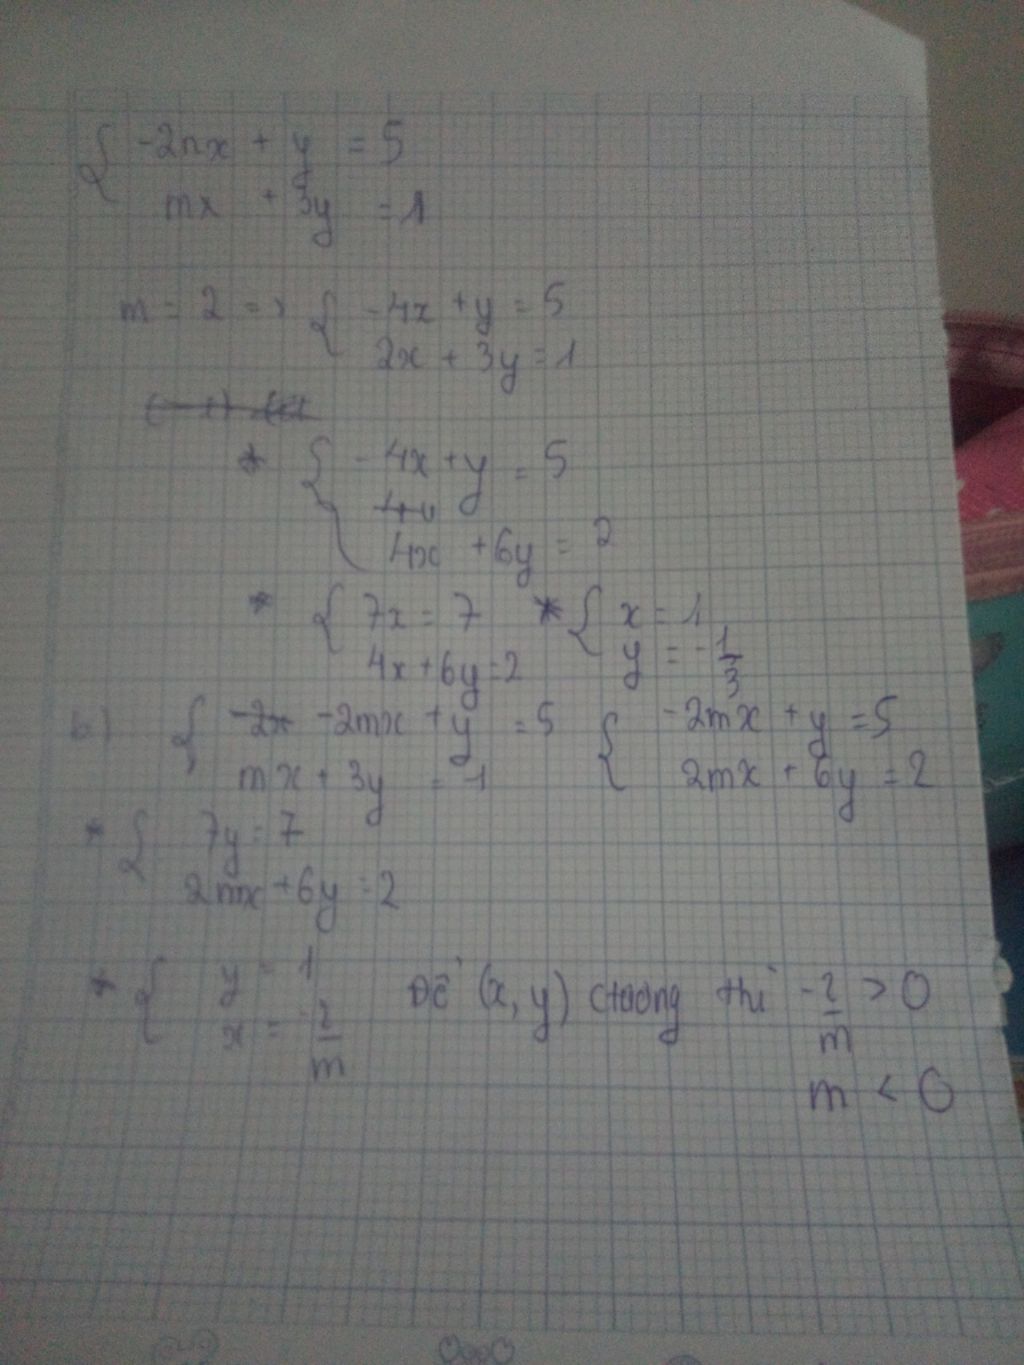 { -2mx + y = 5
mx + 3y = 1
m = 2 => { -4x + y = 5
2x + 3y = 1
* { -4x + y = 5
4x + 6y = 2
* { 7x = 7 * { x = 1
4x + 6y = 2 y = -1/3
b) { -2mx + y = 5 { -2mx + y = 5
mx + 3y = 1 2mx + 6y = 2
* { 7y = 7
2mx + 6y = 2
* { y = 1 Để (x, y) dương thì -2/m > 0
x = -2/m
m < 0